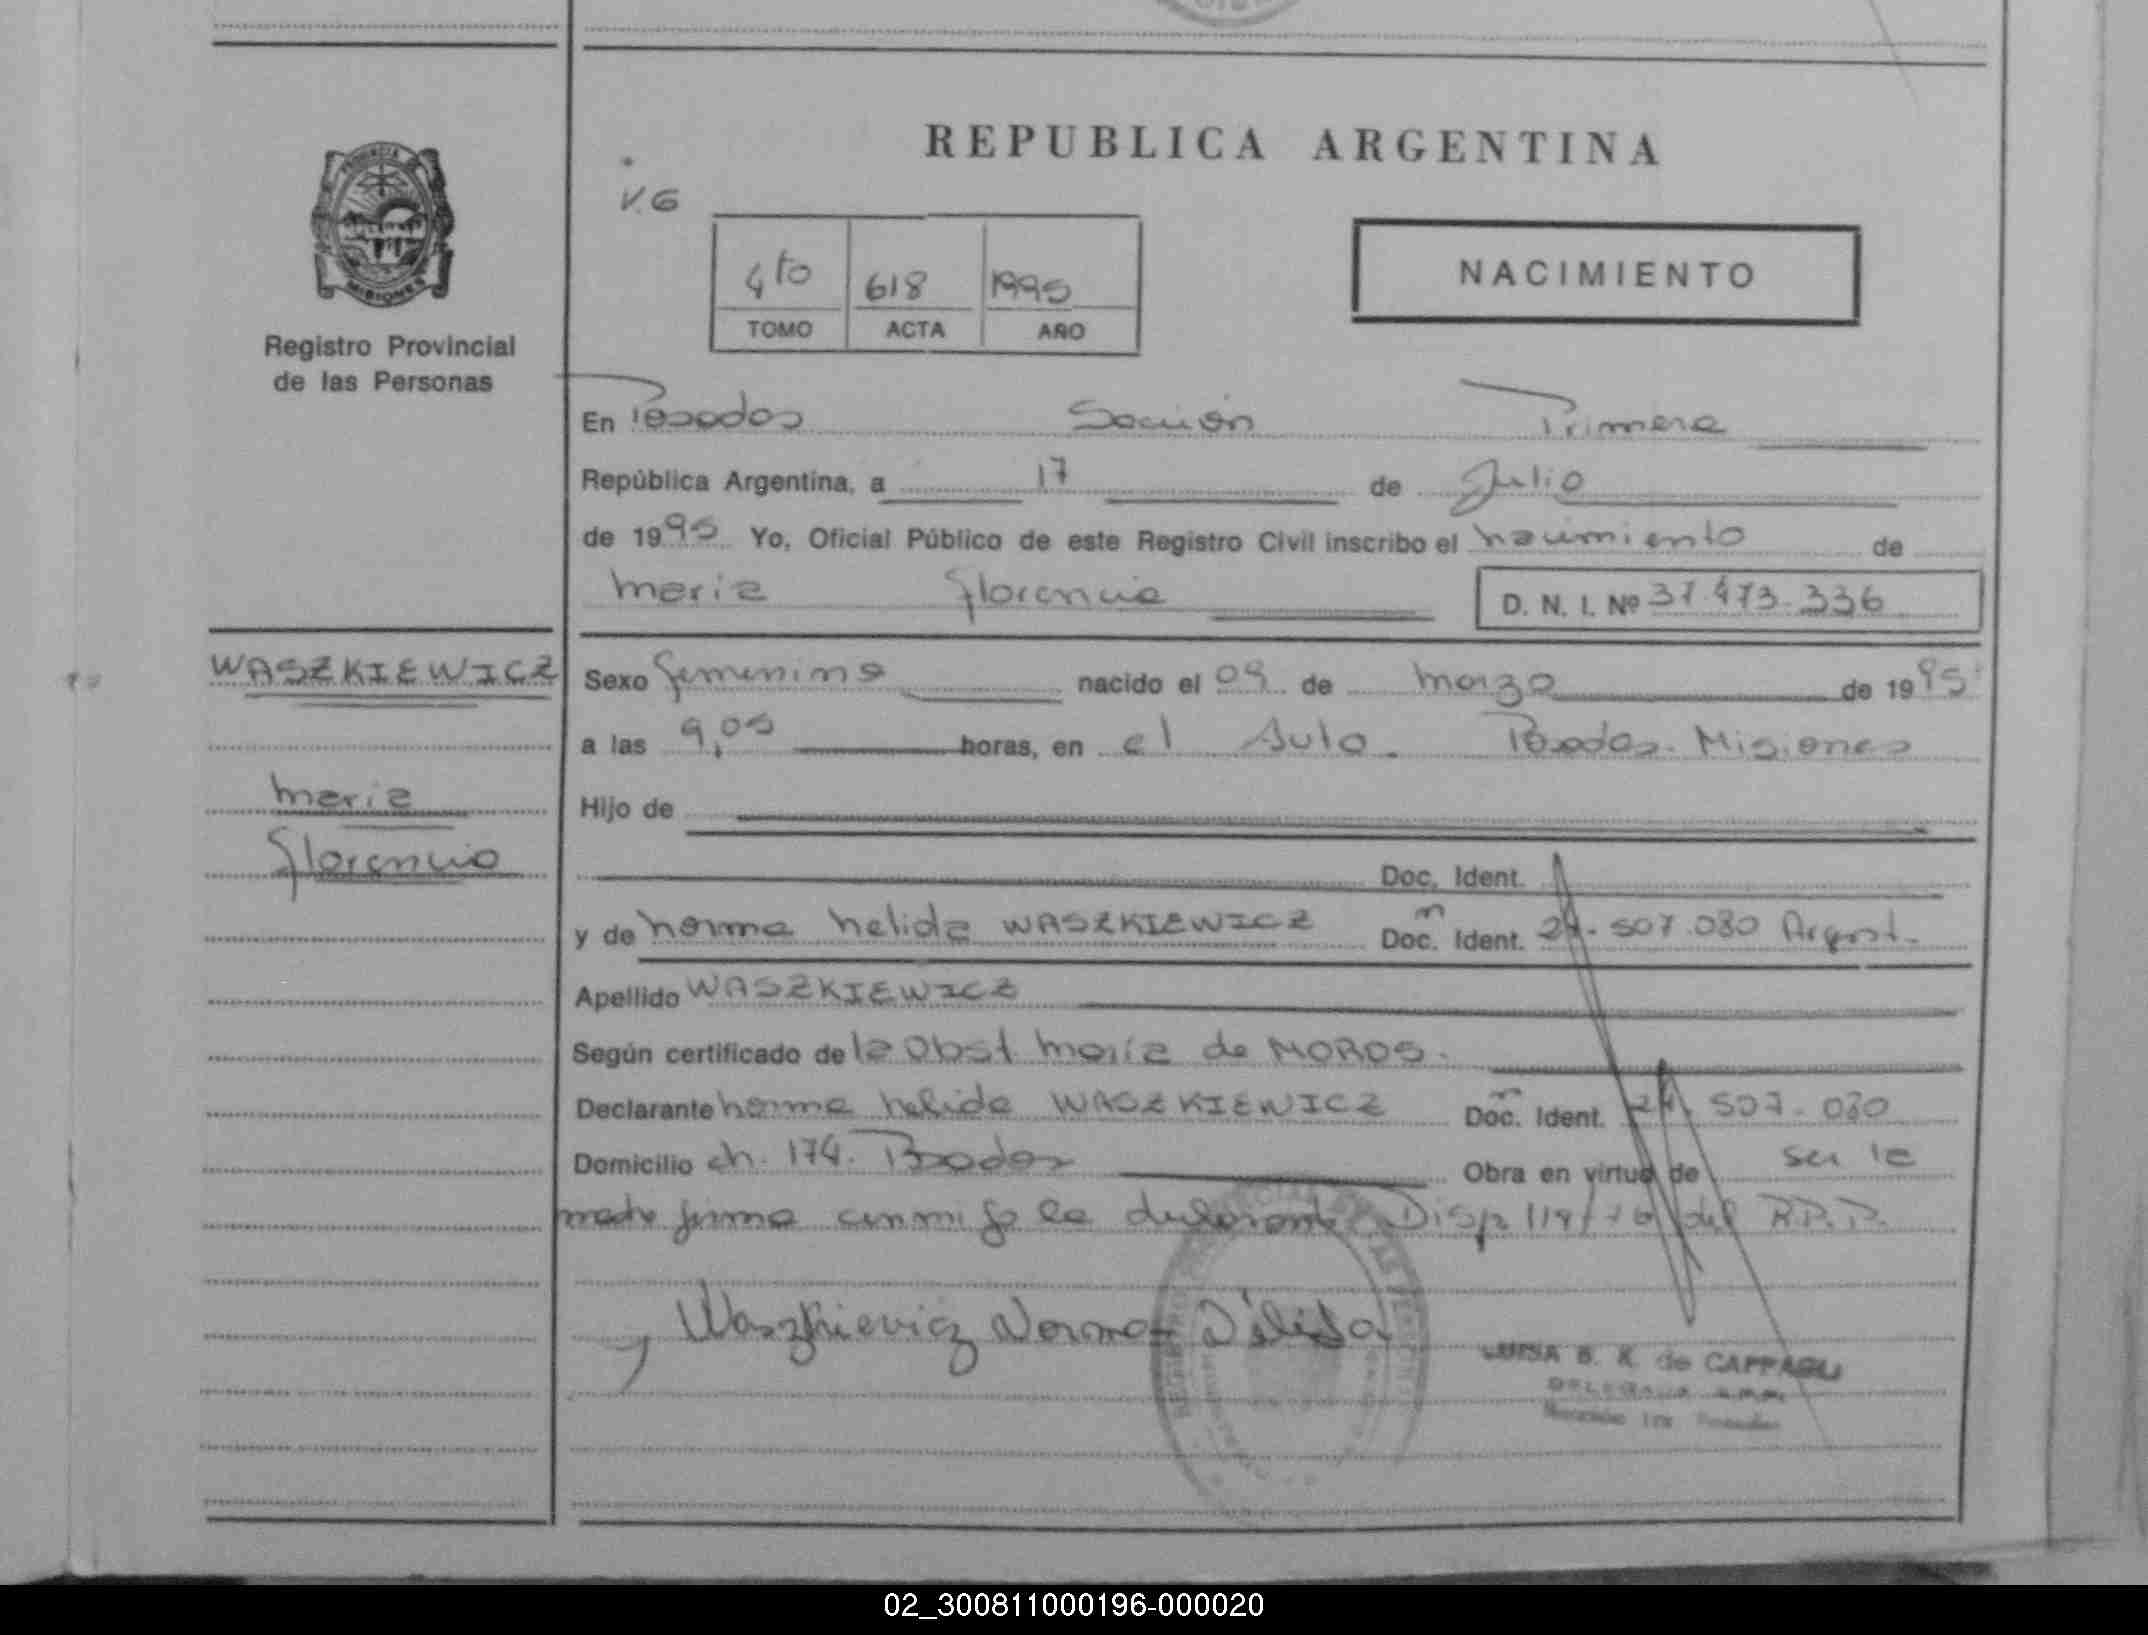 REPUBLICA ARGENTINA
V.G
4to 618 1995
TOMO ACTA AÑO
NACIMIENTO
PROVINCIA
MISIONES
Registro Provincial
de las Personas
En Posadas Sección Primera
República Argentina, a 17 de Julio
de 1995 Yo, Oficial Público de este Registro Civil inscribo el nacimiento de
Maria Florencia D. N. I. Nº 37.473.336
WASZKIEWICZ
Maria
Florencia
Sexo femenino nacido el 09 de marzo de 1995
a las 9,05 horas, en el Sulo. Posadas. Misiones
Hijo de
Doc. Ident.
y de Norma Nelida WASZKIEWICZ Doc. Ident. 24.507.080 Argent.
Apellido WASZKIEWICZ
Según certificado de la Obst Maria de MOROS.
Declarante Norma Nelida WASZKIEWICZ Doc. Ident. 24.507.080
Domicilio ch. 174. Posadas Obra en virtud de ser la
madre firma conmigo la declarante Disp 119/76 del R.P.P.
Waszkievicz Norma Nélida
LUISA B. K. de CAPPAGLI
02_300811000196-000020